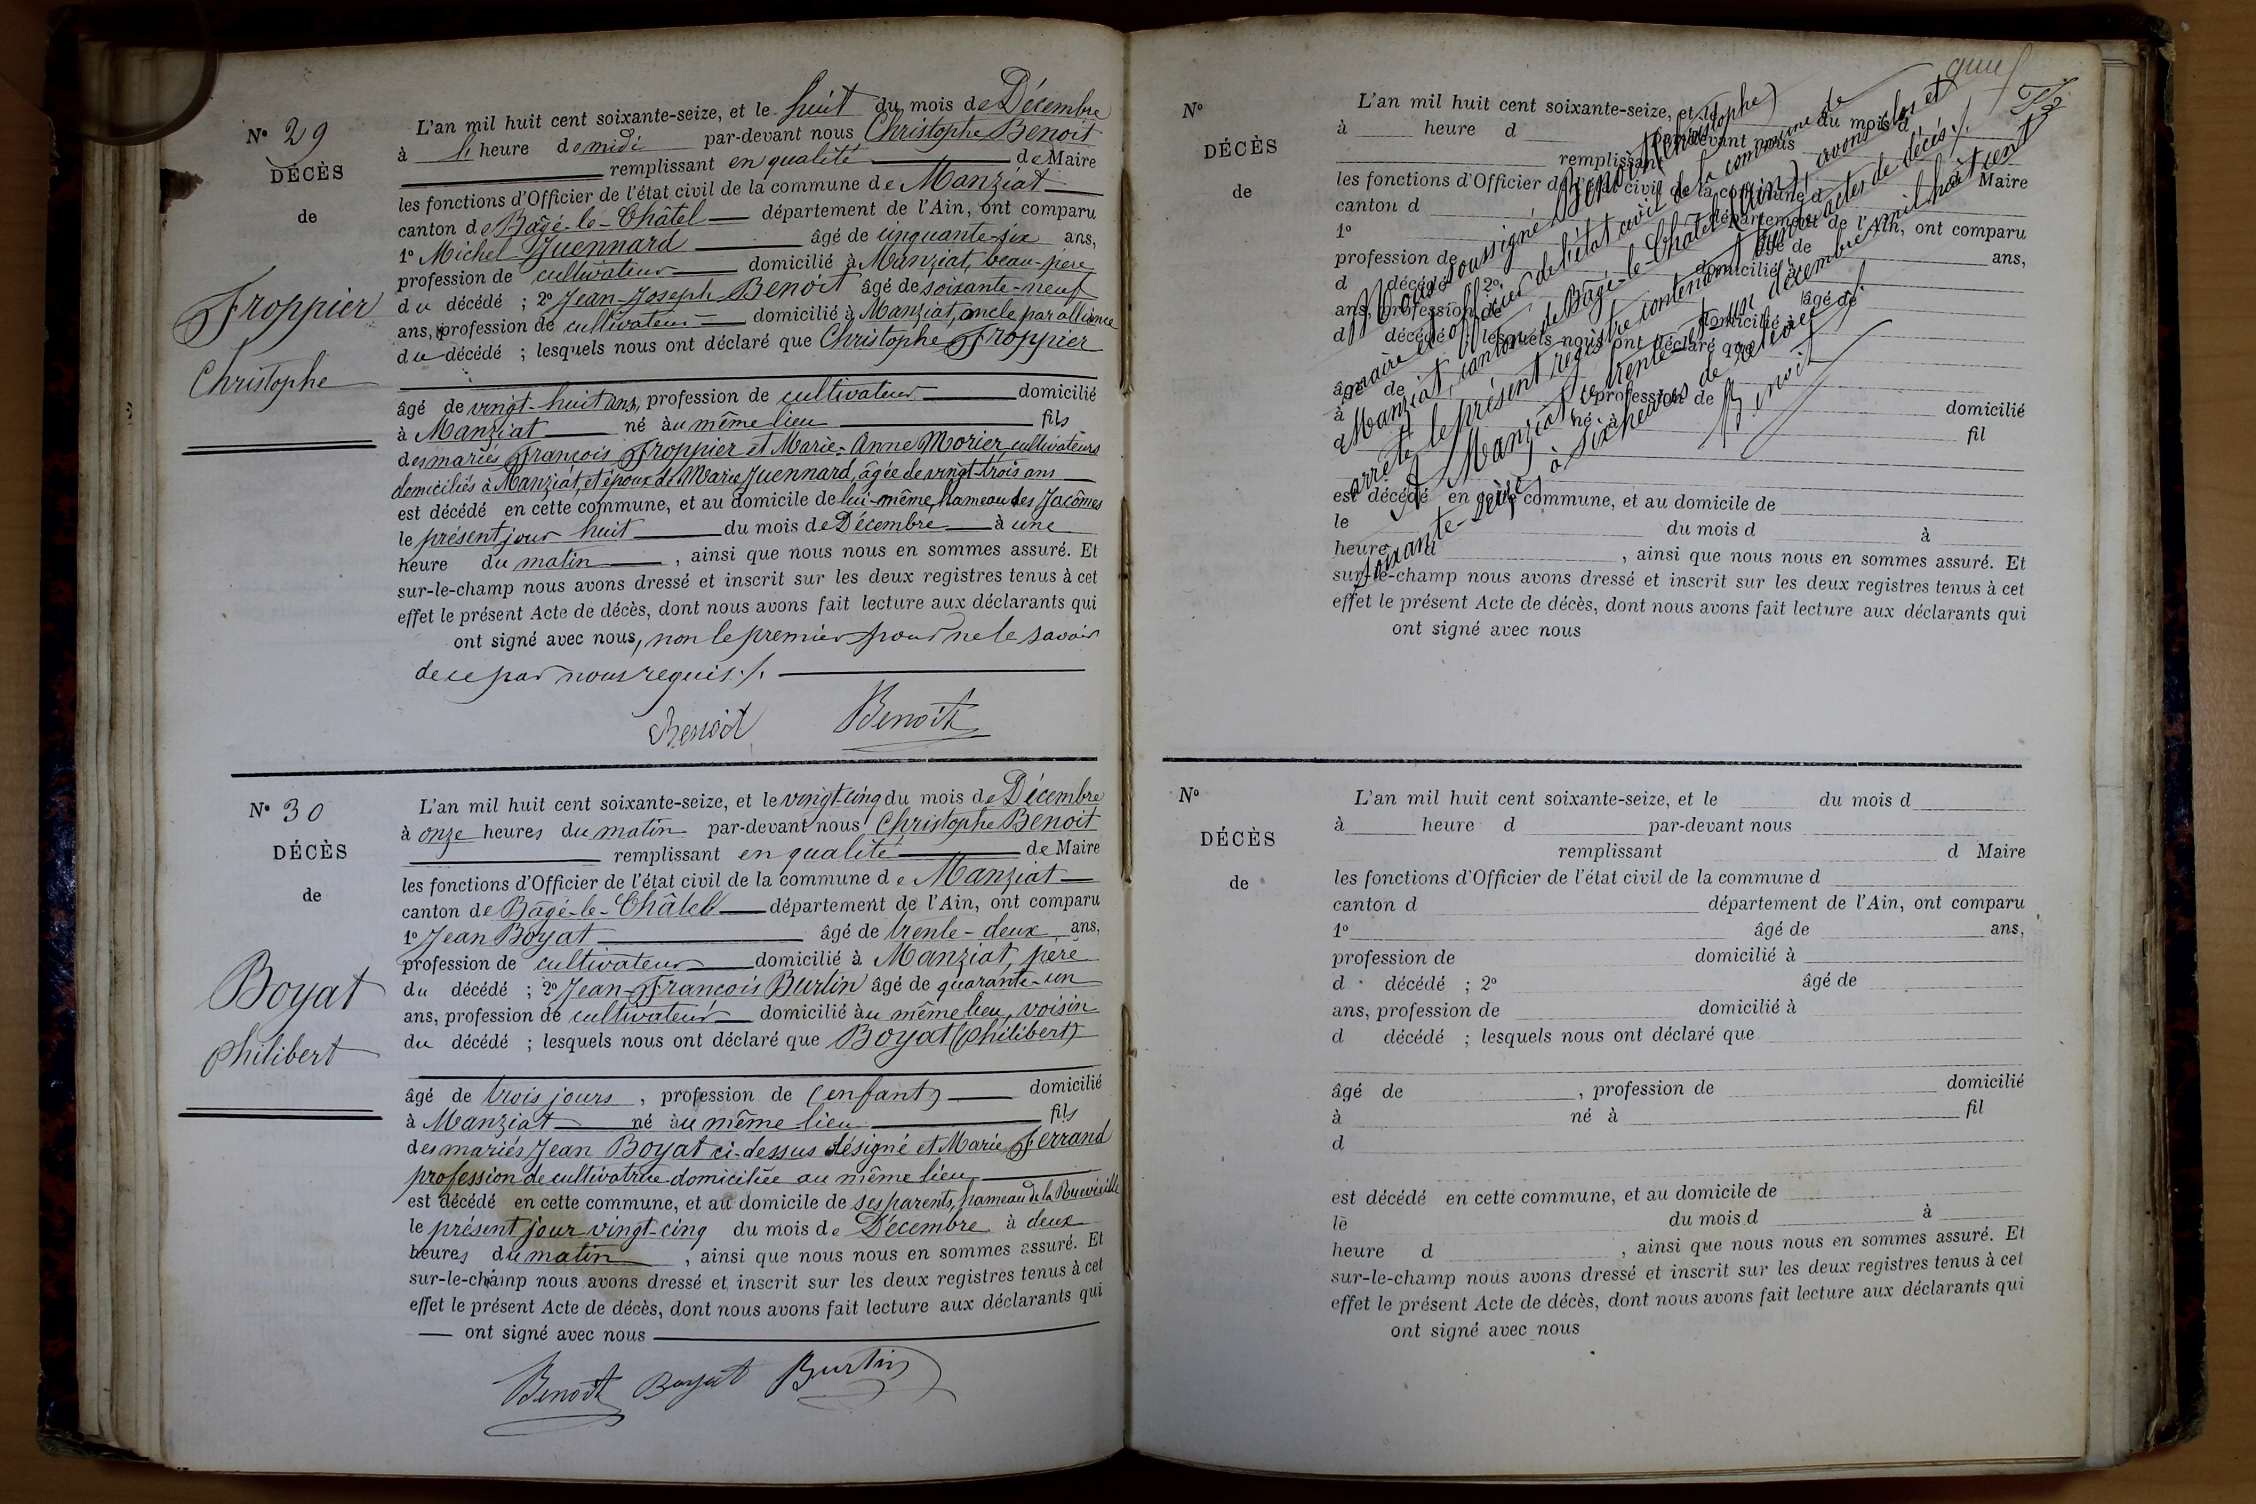 N° 29
DÉCÈS
de
Froppier
Christophe
L'an mil huit cent soixante-seize, et le huit du mois de Décembre
à heure de midi par-devant nous Christophe Benoit
remplissant en qualité de Maire
les fonctions d'Officier de l'état civil de la commune de Manziat
canton de Bâgé-le-Châtel département de l'Ain, ont comparu
1° Michel Juennard âgé de cinquante-six ans,
profession de cultivateur domicilié à Manziat, beau-père
du décédé ; 2° Jean-Joseph Benoit âgé de soixante-neuf
ans, profession de cultivateur domicilié à Manziat, oncle par alliance
du décédé ; lesquels nous ont déclaré que Christophe Froppier
âgé de vingt-huit ans, profession de cultivateur domicilié
à Manziat né au même lieu fils
des mariés François Froppier et Marie-Anne Morier cultivateurs
domiciliés à Manziat, et époux de Marie Juennard, âgée de vingt-trois ans
est décédé en cette commune, et au domicile de lui-même, hameau des Jacômes
le présent jour huit du mois de Décembre à une
heure du matin, ainsi que nous nous en sommes assuré. Et
sur-le-champ nous avons dressé et inscrit sur les deux registres tenus à cet
effet le présent Acte de décès, dont nous avons fait lecture aux déclarants qui
ont signé avec nous, non le premier pour ne le savoir
de ce par nous requis ./.
Benoit Benoit
N° 30
DÉCÈS
de
Boyat
Philibert
L'an mil huit cent soixante-seize, et le vingt-cinq du mois de Décembre
à onze heures du matin par-devant nous Christophe Benoit
remplissant en qualité de Maire
les fonctions d'Officier de l'état civil de la commune de Manziat
canton de Bâgé-le-Châtel département de l'Ain, ont comparu
1° Jean Boyat âgé de trente-deux ans,
profession de cultivateur domicilié à Manziat, père
du décédé ; 2° Jean-François Burtin âgé de quarante-un
ans, profession de cultivateur domicilié au même lieu, voisin
du décédé ; lesquels nous ont déclaré que Boyat (Philibert)
âgé de trois jours, profession de (enfant) domicilié
à Manziat né au même lieu fils
des mariés Jean Boyat ci-dessus désigné et Marie Ferrand
profession de cultivatrice domiciliée au même lieu
est décédé en cette commune, et au domicile de ses parents, hameau de la
le présent jour vingt-cinq du mois de Décembre à deux
heures du matin, ainsi que nous nous en sommes assuré. Et
sur-le-champ nous avons dressé et inscrit sur les deux registres tenus à cet
effet le présent Acte de décès, dont nous avons fait lecture aux déclarants qui
ont signé avec nous
Benoit Boyat Burtin
N°
DÉCÈS
de
L'an mil huit cent soixante-seize, et le du mois d
à heure d par-devant nous
remplissant d Maire
les fonctions d'Officier de l'état civil de la commune d
canton d département de l'Ain, ont comparu
1° âgé de ans,
profession de domicilié à
d décédé ; 2° âgé de
ans, profession de domicilié à
d décédé ; lesquels nous ont déclaré que
âgé de , profession de domicilié
à né à fil
d
est décédé en cette commune, et au domicile de
le du mois d à
heure d , ainsi que nous nous en sommes assuré. Et
sur-le-champ nous avons dressé et inscrit sur les deux registres tenus à cet
effet le présent Acte de décès, dont nous avons fait lecture aux déclarants qui
ont signé avec nous
Nous soussigné Benoit (Christophe)
maire et officier de l'état civil de la commune de
Manziat, canton de Bâgé-le-Châtel (Ain), avons clos et
arrêté le présent registre contenant trente actes de décès ./.
A Manziat le trente-et-un décembre mil huit cent
soixante-seize, à six heures de relevée ./.
Benoit
N°
DÉCÈS
de
L'an mil huit cent soixante-seize, et le du mois d
à heure d par-devant nous
remplissant d Maire
les fonctions d'Officier de l'état civil de la commune d
canton d département de l'Ain, ont comparu
1° âgé de ans,
profession de domicilié à
d décédé ; 2° âgé de
ans, profession de domicilié à
d décédé ; lesquels nous ont déclaré que
âgé de , profession de domicilié
à né à fil
d
est décédé en cette commune, et au domicile de
le du mois d à
heure d , ainsi que nous nous en sommes assuré. Et
sur-le-champ nous avons dressé et inscrit sur les deux registres tenus à cet
effet le présent Acte de décès, dont nous avons fait lecture aux déclarants qui
ont signé avec nous